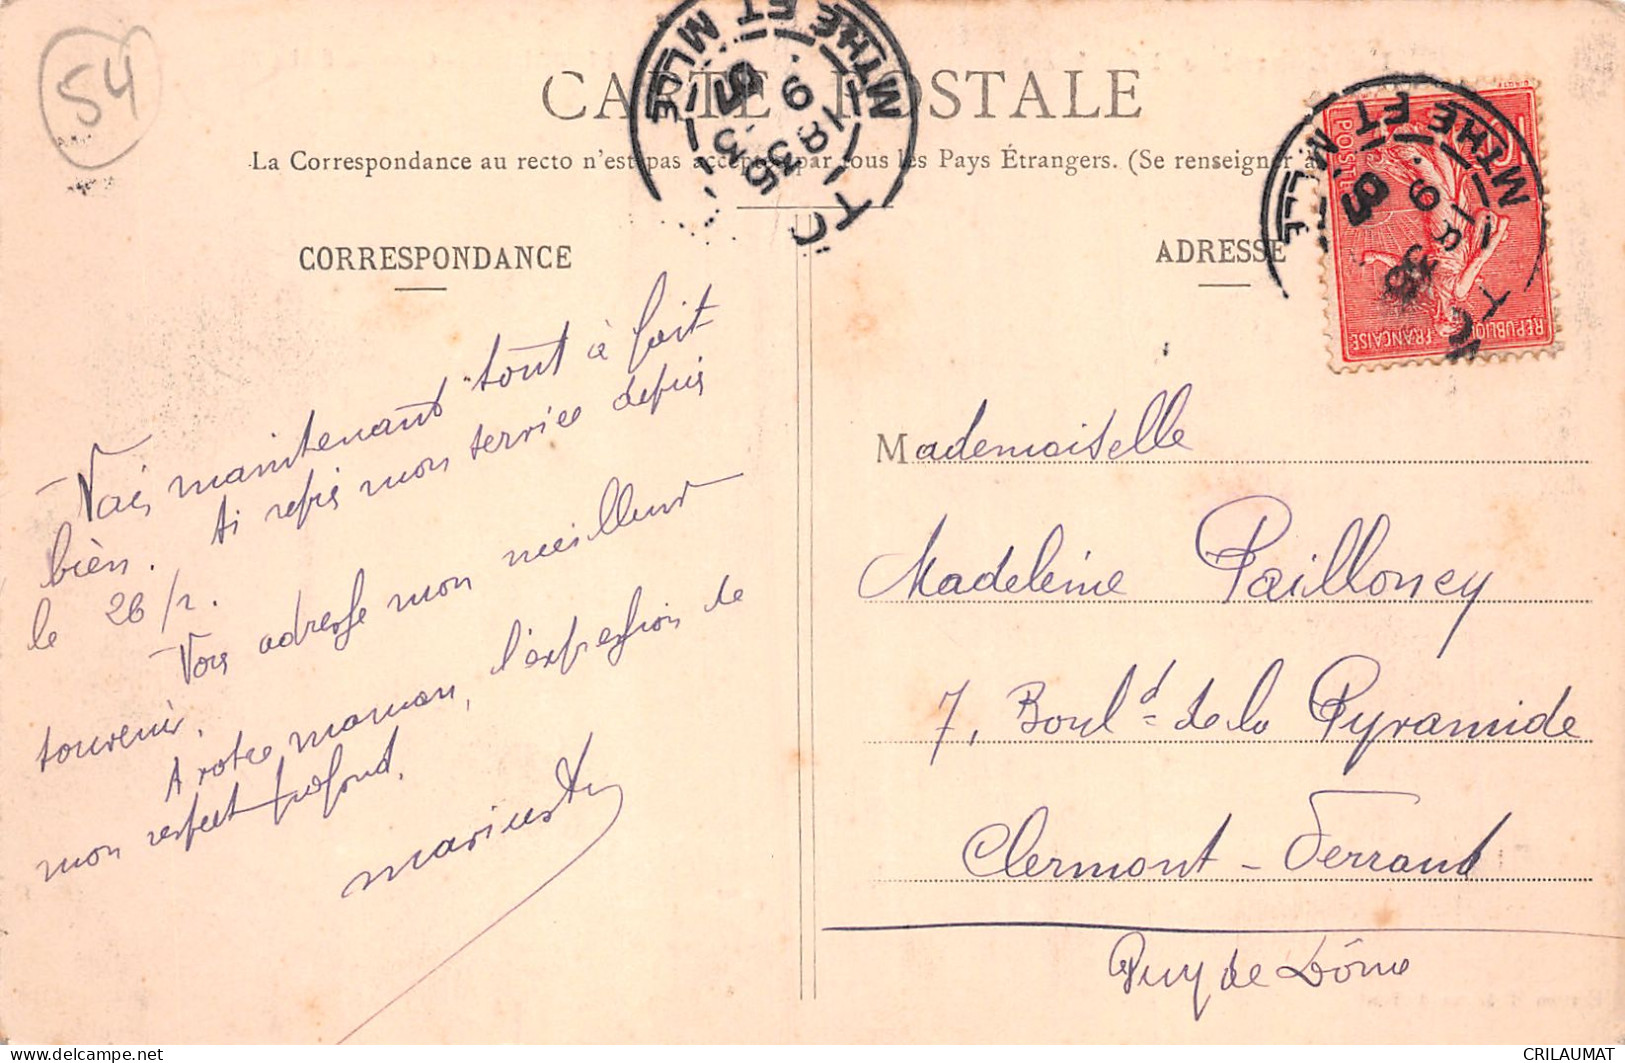 54
CARTE POSTALE
La Correspondance au recto n'est pas acceptée par tous les Pays Étrangers. (Se renseigner à
CORRESPONDANCE
Vais maintenant tout à fait
bien. Ai repris mon service depuis
le 26/2.
Vous adresse mon meilleur
souvenir.
A votre maman, l'expression de
mon respect profond.
ADRESSE
Mademoiselle
Madeleine Pailloncy
7, Boul^d de la Pyramide
Clermont-Ferrand
Puy de Dôme
MTHE ET MLLE
18 35
9 3
05
MTHE ET MLLE
18 35
9
05
POSTES
RÉPUBLIQUE FRANÇAISE
https://www.delcampe.net
CRILAUMAT